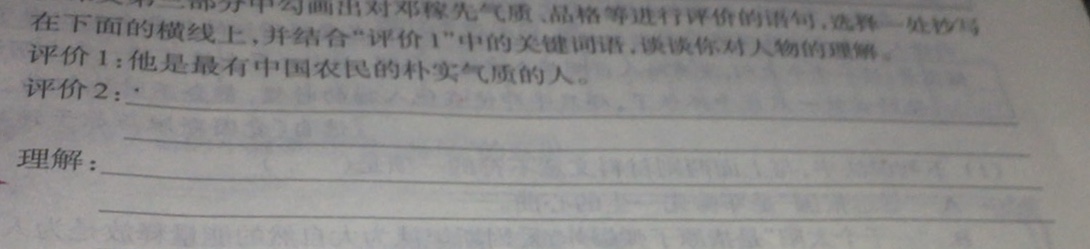 部分中勾画出对邓稼先气质、品格等进行评价的语句,选择一处抄写
在下面的横线上,并结合“评价1”中的关键词语,谈谈你对人物的理解。
评价1:他是最有中国农民的朴实气质的人。
评价2:
理解: